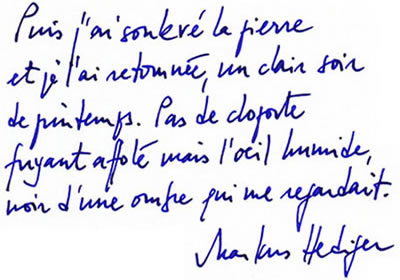 Puis j'ai soulevé la pierre
et je l'ai retournée, un clair soir
de printemps. Pas de cloporte
fuyant affolé mais l'œil humide,
noir d'une ombre qui me regardait.
Markus Hediger